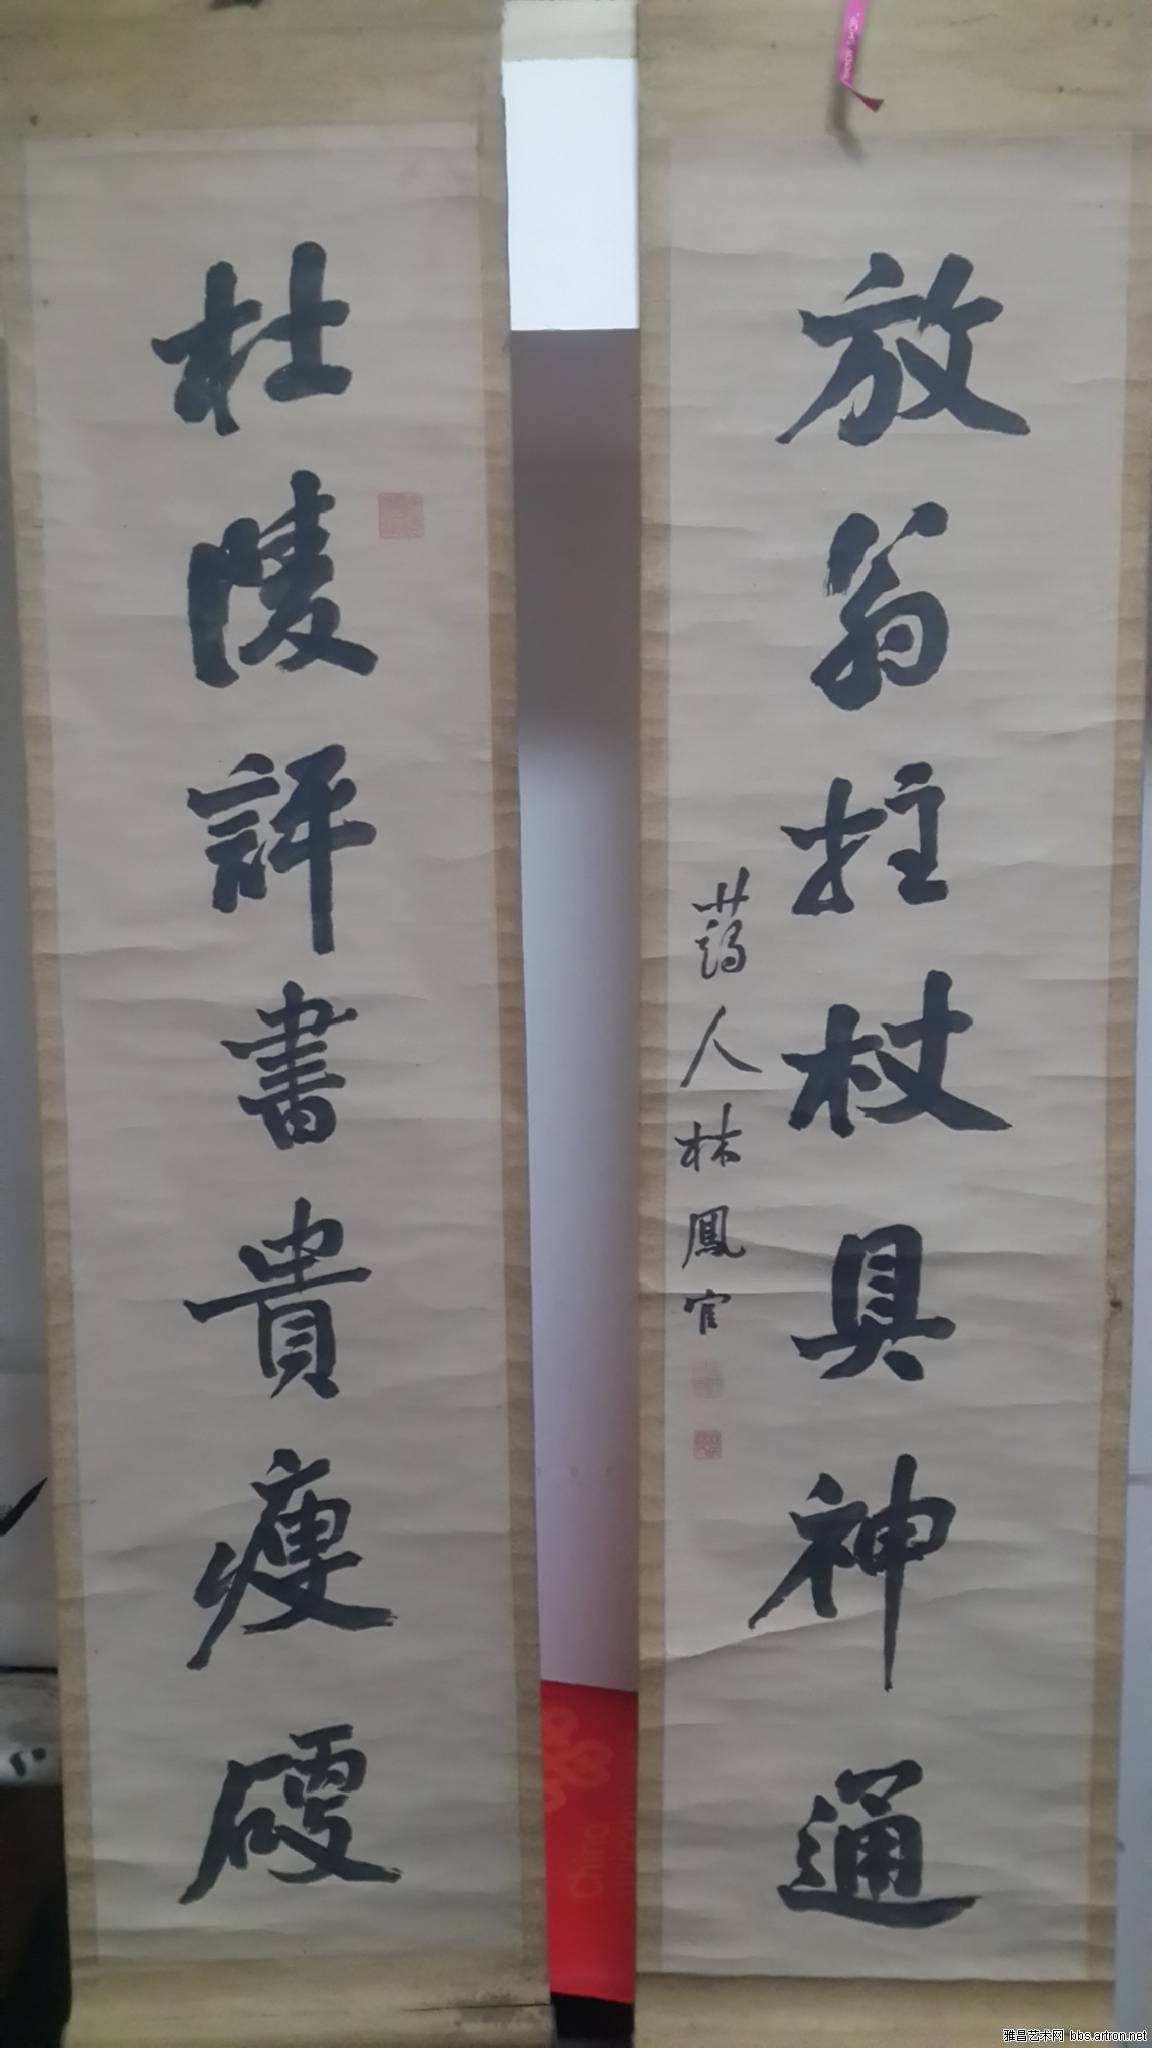 杜陵評書貴瘦硬
放翁拄杖具神通
藹人林鳳官
雅昌艺术网 bbs.artron.net